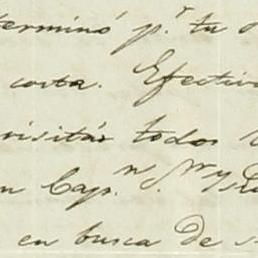 terminó p.r tu
corta. Efectiv
visitár todos
n Cap.n
en busca de s